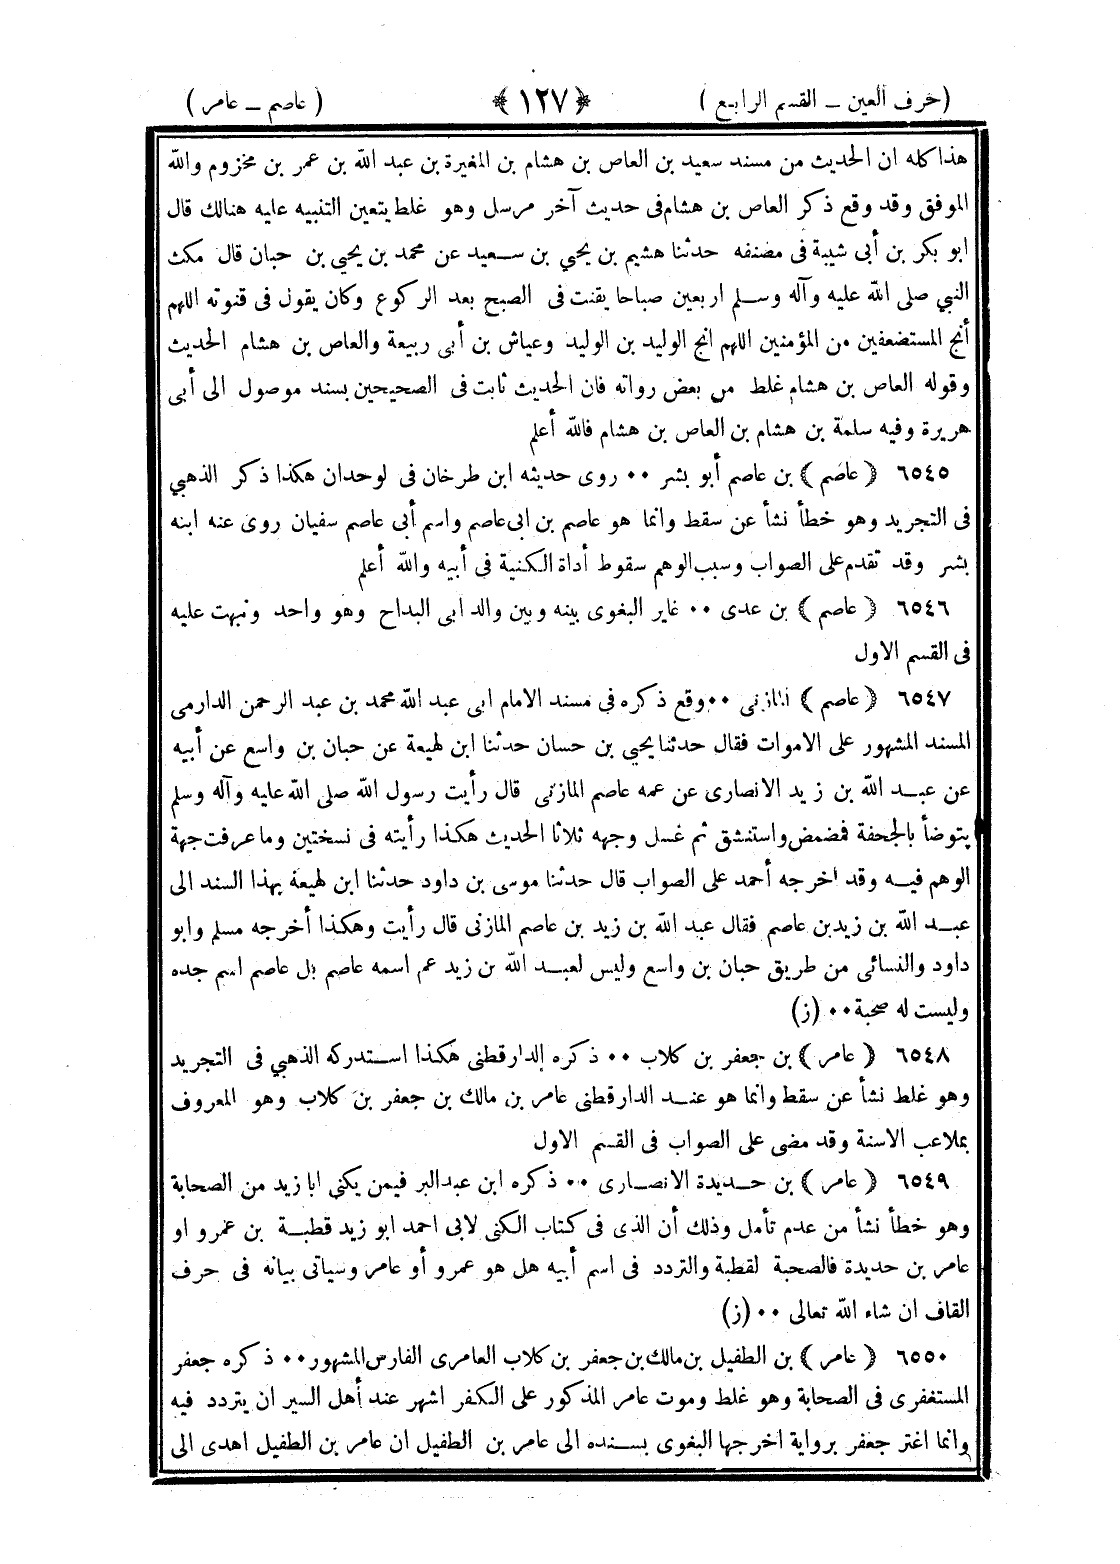 (حرف العين ــ القسم الرابع) ﴿١٢٧﴾ (عاصم ــ عامر)
هذا كله ان الحديث من مسند سعيد بن العاص بن هشام بن المغيرة بن عبد الله بن عمر بن مخزوم والله
الموفق وقد وقع ذكر العاص بن هشام فى حديث آخر مرسل وهو غلط يتعين التنبيه عليه هنالك قال
ابو بكر بن أبى شيبة فى مصنفه حدثنا هشيم بن يحي بن سعيد عن محمد بن يحي بن حبان قال مكث
النبي صلى الله عليه وآله وسلم اربعين صباحا يقنت فى الصبح بعد الركوع وكان يقول فى قنوته اللهم
أنج المستضعفين من المؤمنين اللهم انج الوليد بن الوليد وعياش بن أبى ربيعة والعاص بن هشام الحديث
وقوله العاص بن هشام غلط من بعض رواته فان الحديث ثابت فى الصحيحين بسند موصول الى أبى
هريرة وفيه سلمة بن هشام بن العاص بن هشام فالله أعلم
٦٥٤٥ ﴿عاصم﴾ بن عاصم أبو بشر ٠٠ روى حديثه ابن طرخان فى لوحدان هكذا ذكر الذهبي
فى التجريد وهو خطأ نشأ عن سقط وانما هو عاصم بن ابى عاصم واسم أبى عاصم سفيان روى عنه ابنه
بشر وقد تقدم على الصواب وسبب الوهم سقوط أداة الكنية فى أبيه والله أعلم
٦٥٤٦ ﴿عاصم﴾ بن عدى ٠٠ غاير البغوى بينه وبين والد ابى البداح وهو واحد ونبهت عليه
فى القسم الاول
٦٥٤٧ ﴿عاصم﴾ المازنى ٠٠ وقع ذكره فى مسند الامام ابى عبد الله محمد بن عبد الرحمن الدارمى
المسند المشهور على الاموات فقال حدثنا يحي بن حسان حدثنا ابن لهيعة عن حبان بن واسع عن أبيه
عن عبد الله بن زيد الانصارى عن عمه عاصم المازنى قال رأيت رسول الله صلى الله عليه وآله وسلم
يتوضأ بالجحفة فمضمض واستنشق ثم غسل وجهه ثلاثا الحديث هكذا رأيته فى نسختين وما عرفت جهة
الوهم فيه وقد اخرجه أحمد على الصواب قال حدثنا موسى بن داود حدثنا ابن لهيعة بهذا السند الى
عبد الله بن زيد بن عاصم فقال عبد الله بن زيد بن عاصم المازنى قال رأيت وهكذا أخرجه مسلم وابو
داود والنسائى من طريق حبان بن واسع وليس لعبد الله بن زيد عم اسمه عاصم بل عاصم اسم جده
وليست له صحبة ٠٠ (ز)
٦٥٤٨ ﴿عامر﴾ بن جعفر بن كلاب ٠٠ ذكره الدارقطنى هكذا استدركه الذهبي فى التجريد
وهو غلط نشأ عن سقط وانما هو عند الدارقطنى عامر بن مالك بن جعفر بن كلاب وهو المعروف
بملاعب الاسنة وقد مضى على الصواب فى القسم الاول
٦٥٤٩ ﴿عامر﴾ بن حديدة الانصارى ٠٠ ذكره ابن عبدالبر فيمن يكنى ابا زيد من الصحابة
وهو خطأ نشأ من عدم تأمل وذلك أن الذى فى كتاب الكنى لابى احمد ابو زيد قطبة بن عمرو او
عامر بن حديدة فالصحبة لقطبة والتردد فى اسم أبيه هل هو عمرو أو عامر وسياتى بيانه فى حرف
القاف ان شاء الله تعالى ٠٠ (ز)
٦٥٥٠ ﴿عامر﴾ بن الطفيل بن مالك بن جعفر بن كلاب العامرى الفارس المشهور ٠٠ ذكره جعفر
المستغفرى فى الصحابة وهو غلط وموت عامر المذكور على الكفر اشهر عند أهل السير ان يتردد فيه
وانما اغتر جعفر برواية اخرجها البغوى بسنده الى عامر بن الطفيل ان عامر بن الطفيل اهدى الى